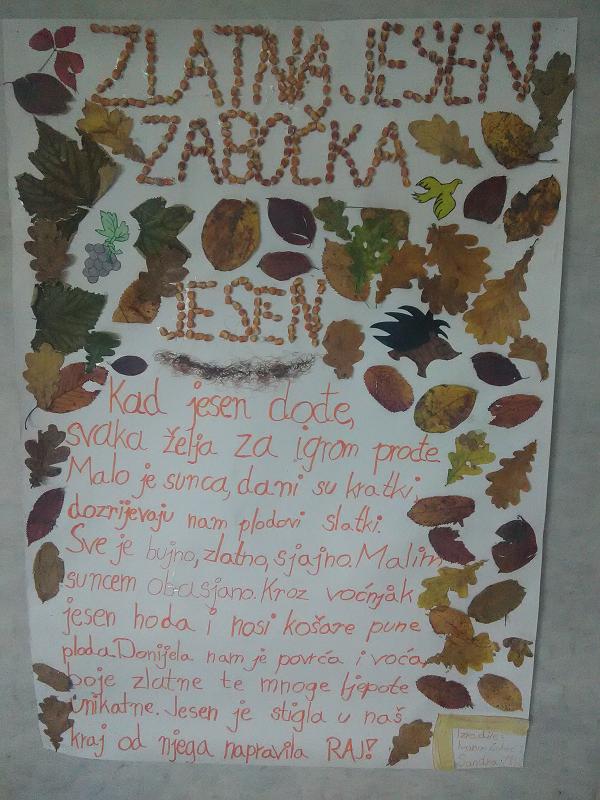 ZLATNA JESEN
ZABOČKA
JESEN
Kad jesen dođe,
svaka želja za igrom prođe
Malo je sunca, dani su kratki,
dozrijevaju nam plodovi slatki.
Sve je bujno, zlatno, sjajno. Malim
suncem obasjano. Kroz voćnjak
jesen hoda i nosi košare pune
ploda. Donijela nam je povrća i voća,
boje zlatne te mnoge ljepote
unikatne. Jesen je stigla u naš
kraj od njega napravila RAJ!
Izradile:
Sandra